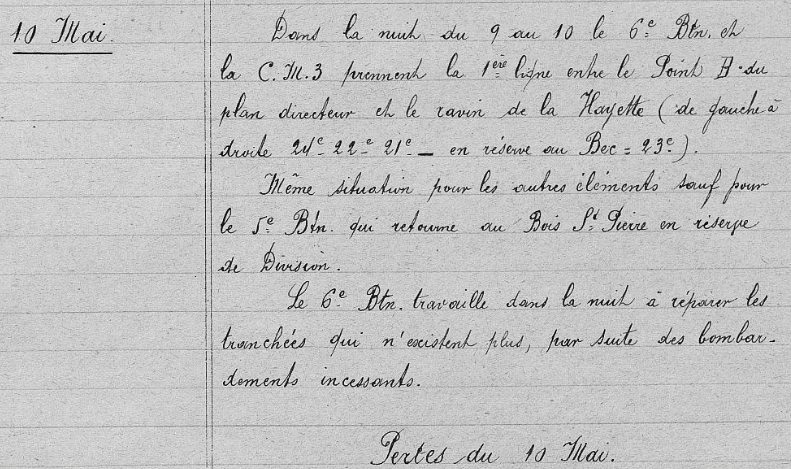 10 Mai.
Dans la nuit du 9 au 10 le 6e Btn. et
la C.M.3 prennent la 1ère ligne entre le Point H du
plan directeur et le ravin de la Hayette (de gauche à
droite 24e 22e 21e — en réserve au Bec = 23e).
Même situation pour les autres éléments sauf pour
le 5e Btn. qui retourne au Bois St Pierre en réserve
de Division.
Le 6e Btn. travaille dans la nuit à réparer les
tranchées qui n'existent plus, par suite des bombar-
dements incessants.
Pertes du 10 Mai.